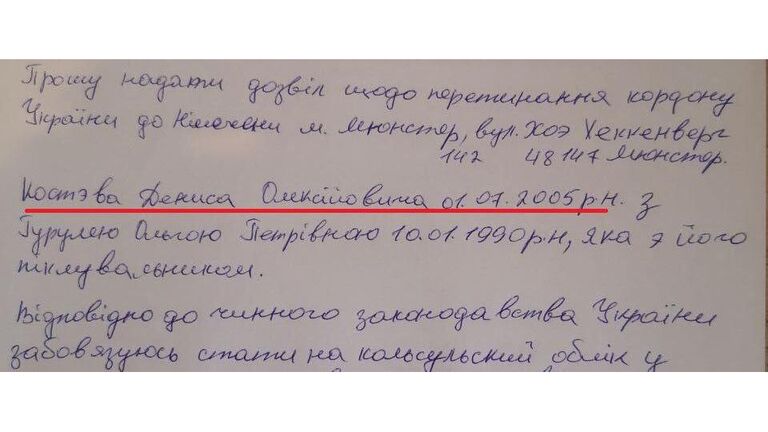 Прошу надати дозвіл щодо перетинання кордону
України до Німечени м. Мюнстер, вул. Хоэ Хеккенверг
142 48147 Мюнстер.
Костэва Дениса Олксійовича 01.07.2005р.н. з
Гурулею Ольгою Петрівною 10.01.1990р.н, яка э його
піклувальником.
Відповідно до чинного законодавства України
забовязуюсь стати на кольсульский облік у